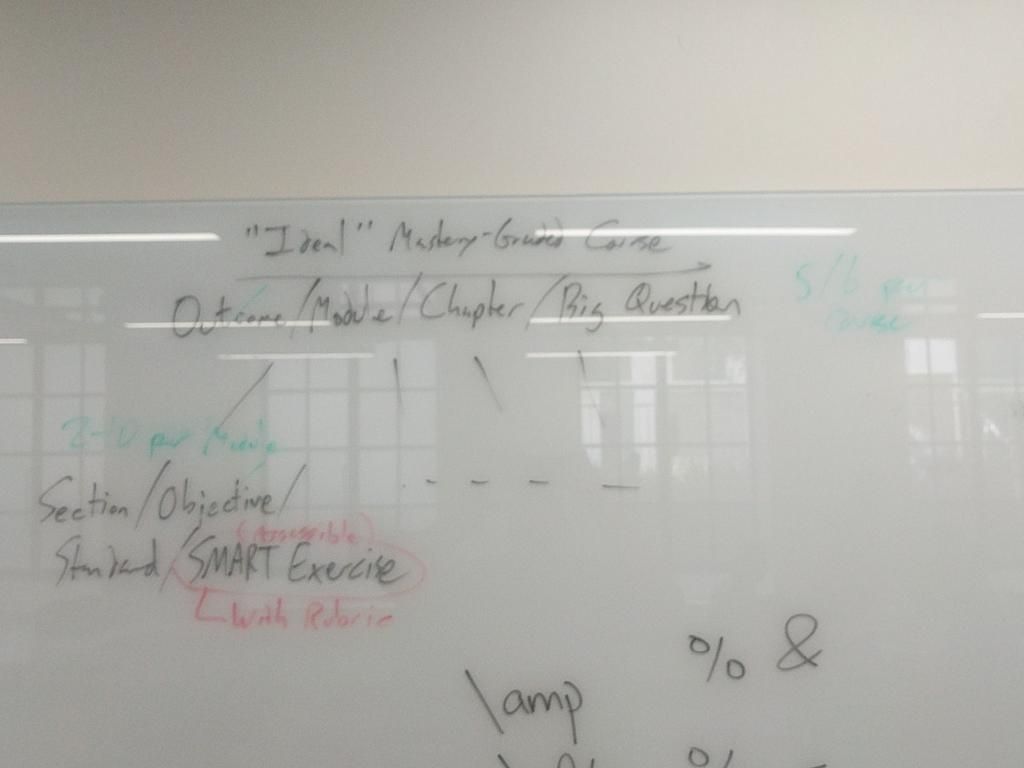 "Ideal" Mastery-Graded Course
Outcome/Module/Chapter/Big Question
5/6 per
course
2-10 per Module
Section/Objective/
(Assessible)
Standard/SMART Exercise
With Rubric
% &
\amp
%